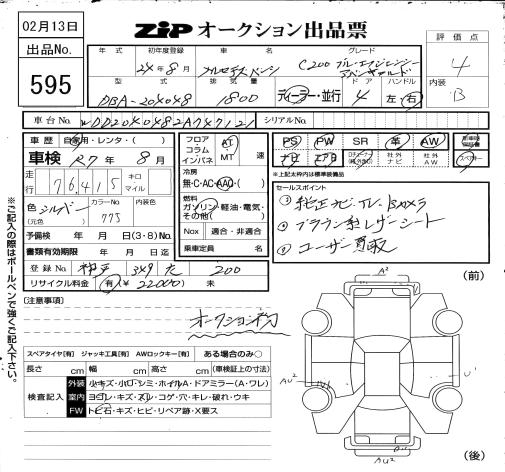 02月13日
ZIP オークション出品票
出品No.
595
年式 初年度登録 車名 グレード
24年8月 メルセデスベンツ C200ブルーエフィシェンシー
アバンギャルド
評価点
4
内装
B
型式 排気量 ドア ハンドル
DBA-204048 1800 ディーラー・並行 4 左・右
車台No. WDD2040482A747121 シリアルNo.
車歴 自家用・レンタ・( )
車検 R7年 8月
走行 76,415 キロ マイル
色 シルバー (元色) カラーNo. 775
予備検 年 月 日(3・8)No.
書類有効期限 年 月 日迄
登録No. 349 200
リサイクル料金 有(¥22000) 未
フロア コラム インパネ AT MT 速
冷房
無・C・AC・AAC( )
燃料
ガソリン・軽油・電気・
その他( )
Nox 適合・非適合
乗車定員 名
PS PW SR 革 AW
ナビ エアB 社外ナビ 社外AW
スペアキー
※上記太枠内は標準装備品
セールスポイント
① 純正ナビ TV Bカメラ
② ブラウン系レザーシート
③ ユーザー買取
(注意事項)
オークション初
(前)
A²
AU²
U'
AU²
(後)
スペアタイヤ[有] ジャッキ工具[有] AWロックキー[有] ある場合のみ○
長さ cm 幅 cm 高さ cm (車検証上の寸法)
検査記入
外装 小キズ・小凹・シミ・ホイルA・ドアミラー(A・ワレ)
室内 ヨゴレ・キズ・スレ・コゲ・穴・キレ・破れ・ウキ
FW トビ石・キズ・ヒビ・リペア跡・X要ス
※ご記入の際はボールペンで強くご記入下さい。